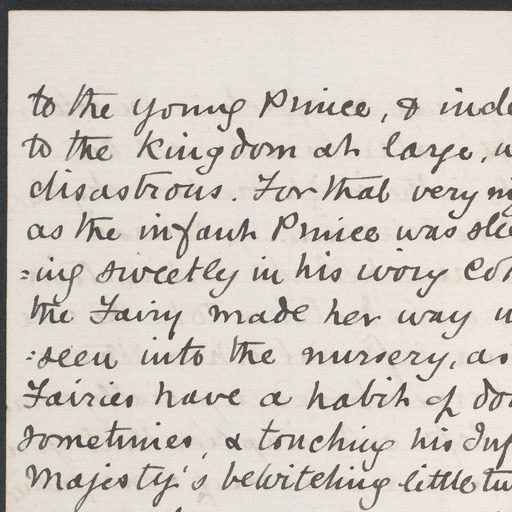 to the young Prince, & inde
to the kingdom at large, u
disastrous. For that very ni
as the infant Prince was slee
=ing sweetly in his ivory Cot
the Fairy made her way u
:seen into the nursery, as
Fairies have a habit of doi
sometimes, & touching his Inf
Majesty's bewitching little tu